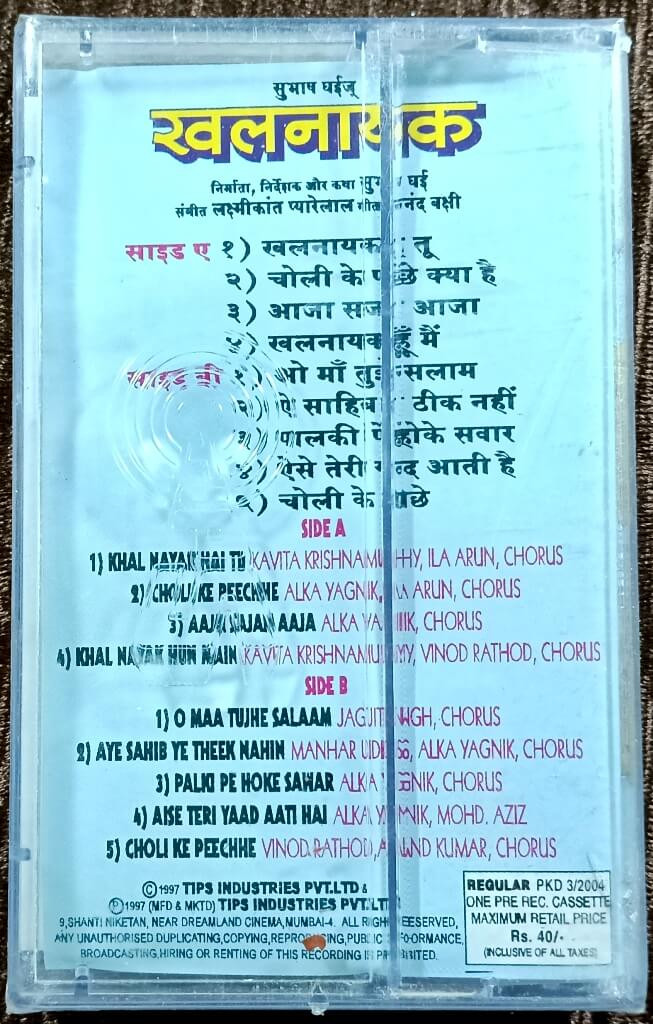 सुभाष घईज्
खलनायक
निर्माता, निर्देशक और कथा घई
संगीत लक्ष्मीकांत प्यारेलाल बक्षी
साइड ए १) खलनायक तू
२) चोली के क्या है
३) आजा आजा
खलनायक हूँ मैं
साइड बी माँ सलाम
ठीक नहीं
होके सवार
४) ऐसे तेरी आती है
चोली के
SIDE A
1) KHAL NAYAK HAI TU KAVITA ILA ARUN, CHORUS
2) CHOLI KE PEECHHE ALKA YAGNIK, ARUN, CHORUS
3) AAJA SAJAN AAJA ALKA CHORUS
4) KHAL NAYAK HUN MAIN VINOD RATHOD, CHORUS
SIDE B
1) O MAA TUJHE SALAAM CHORUS
2) AYE SAHIB YE THEEK NAHIN MANHAR ALKA YAGNIK, CHORUS
3) PALKI PE HOKE SAWAR ALKA CHORUS
4) AISE TERI YAAD AATI HAI ALKA MOHD. AZIZ
5) CHOLI KE PEECHHE VINOD RATHOD, KUMAR, CHORUS
©1997 TIPS INDUSTRIES PVT.LTD &
Ⓟ1997 (MFD & MKTD) TIPS INDUSTRIES PVT.LTD
9,SHANTI NIKETAN, NEAR DREAMLAND CINEMA,MUMBAI-4. ALL
ANY UNAUTHORISED DUPLICATING,COPYING,
BROADCASTING,HIRING OR RENTING OF THIS RECORDING IS
REGULAR PKD 3/2004
ONE PRE REC. CASSETTE
MAXIMUM RETAIL PRICE
Rs. 40/-
(INCLUSIVE OF ALL TAXES)